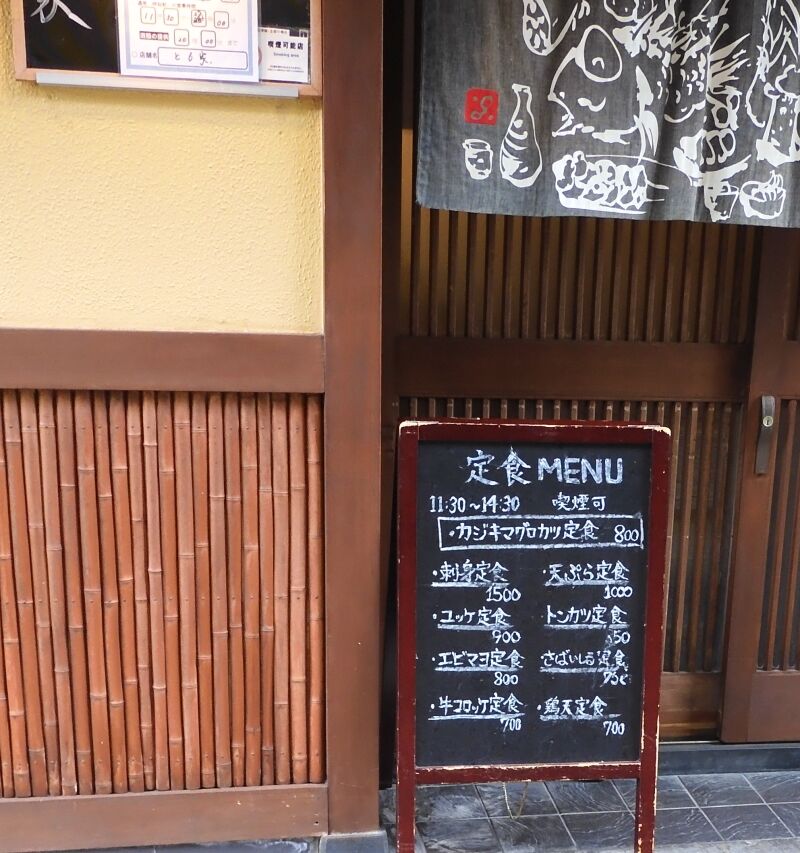 喫煙可能店
Smoking area
酒類の提供
店舗名 とも家
定食MENU
11:30～14:30 喫煙可
・カジキマグロカツ定食 800
・刺身定食 1500
・天ぷら定食 1000
・ユッケ定食 900
トンカツ定食
・エビマヨ定食 800
・牛コロッケ定食 700
・鶏天定食 700